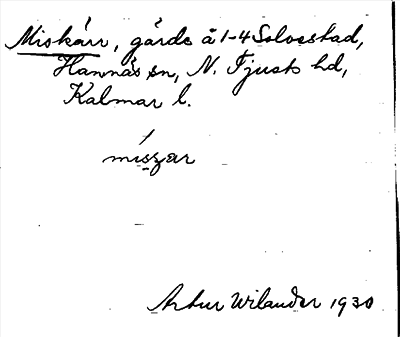 Miskärr, gärde å 1-4 Solvestad,
Hannäs sn, N. Tjusts hd,
Kalmar l.
Artur Wilander 1930